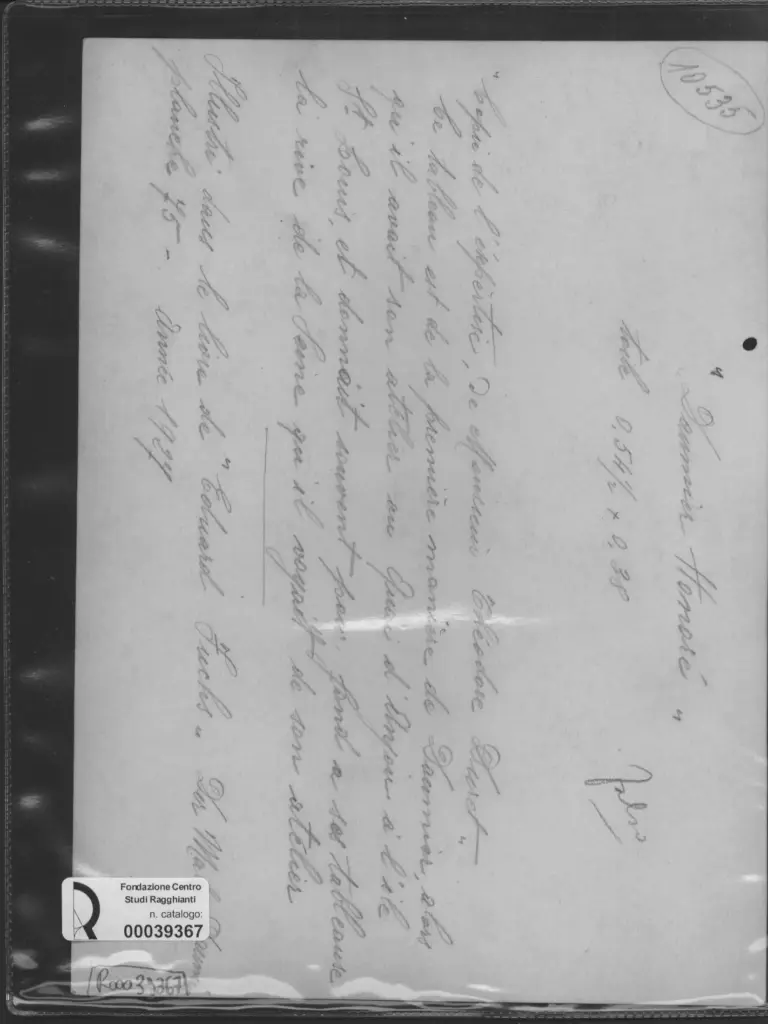 10535
" Daumier Honoré "
toile 0,54½ × 0,38
"Copie de l'expertise, de Monsieur Théodore Duret"
Le tableau est de la première manière de Daumier, alors
qu'il avait son atelier au Quai d'Anjou à l'île
St Louis, et donnait souvent pour fond a ses tableaux
la rive de la Seine qu'il voyait de son atelier
Illustré dans le livre de "Eduard Fuchs" Der
planche 75 - Année 1927
Fondazione Centro
Studi Ragghianti
n. catalogo:
00039367
R00039367